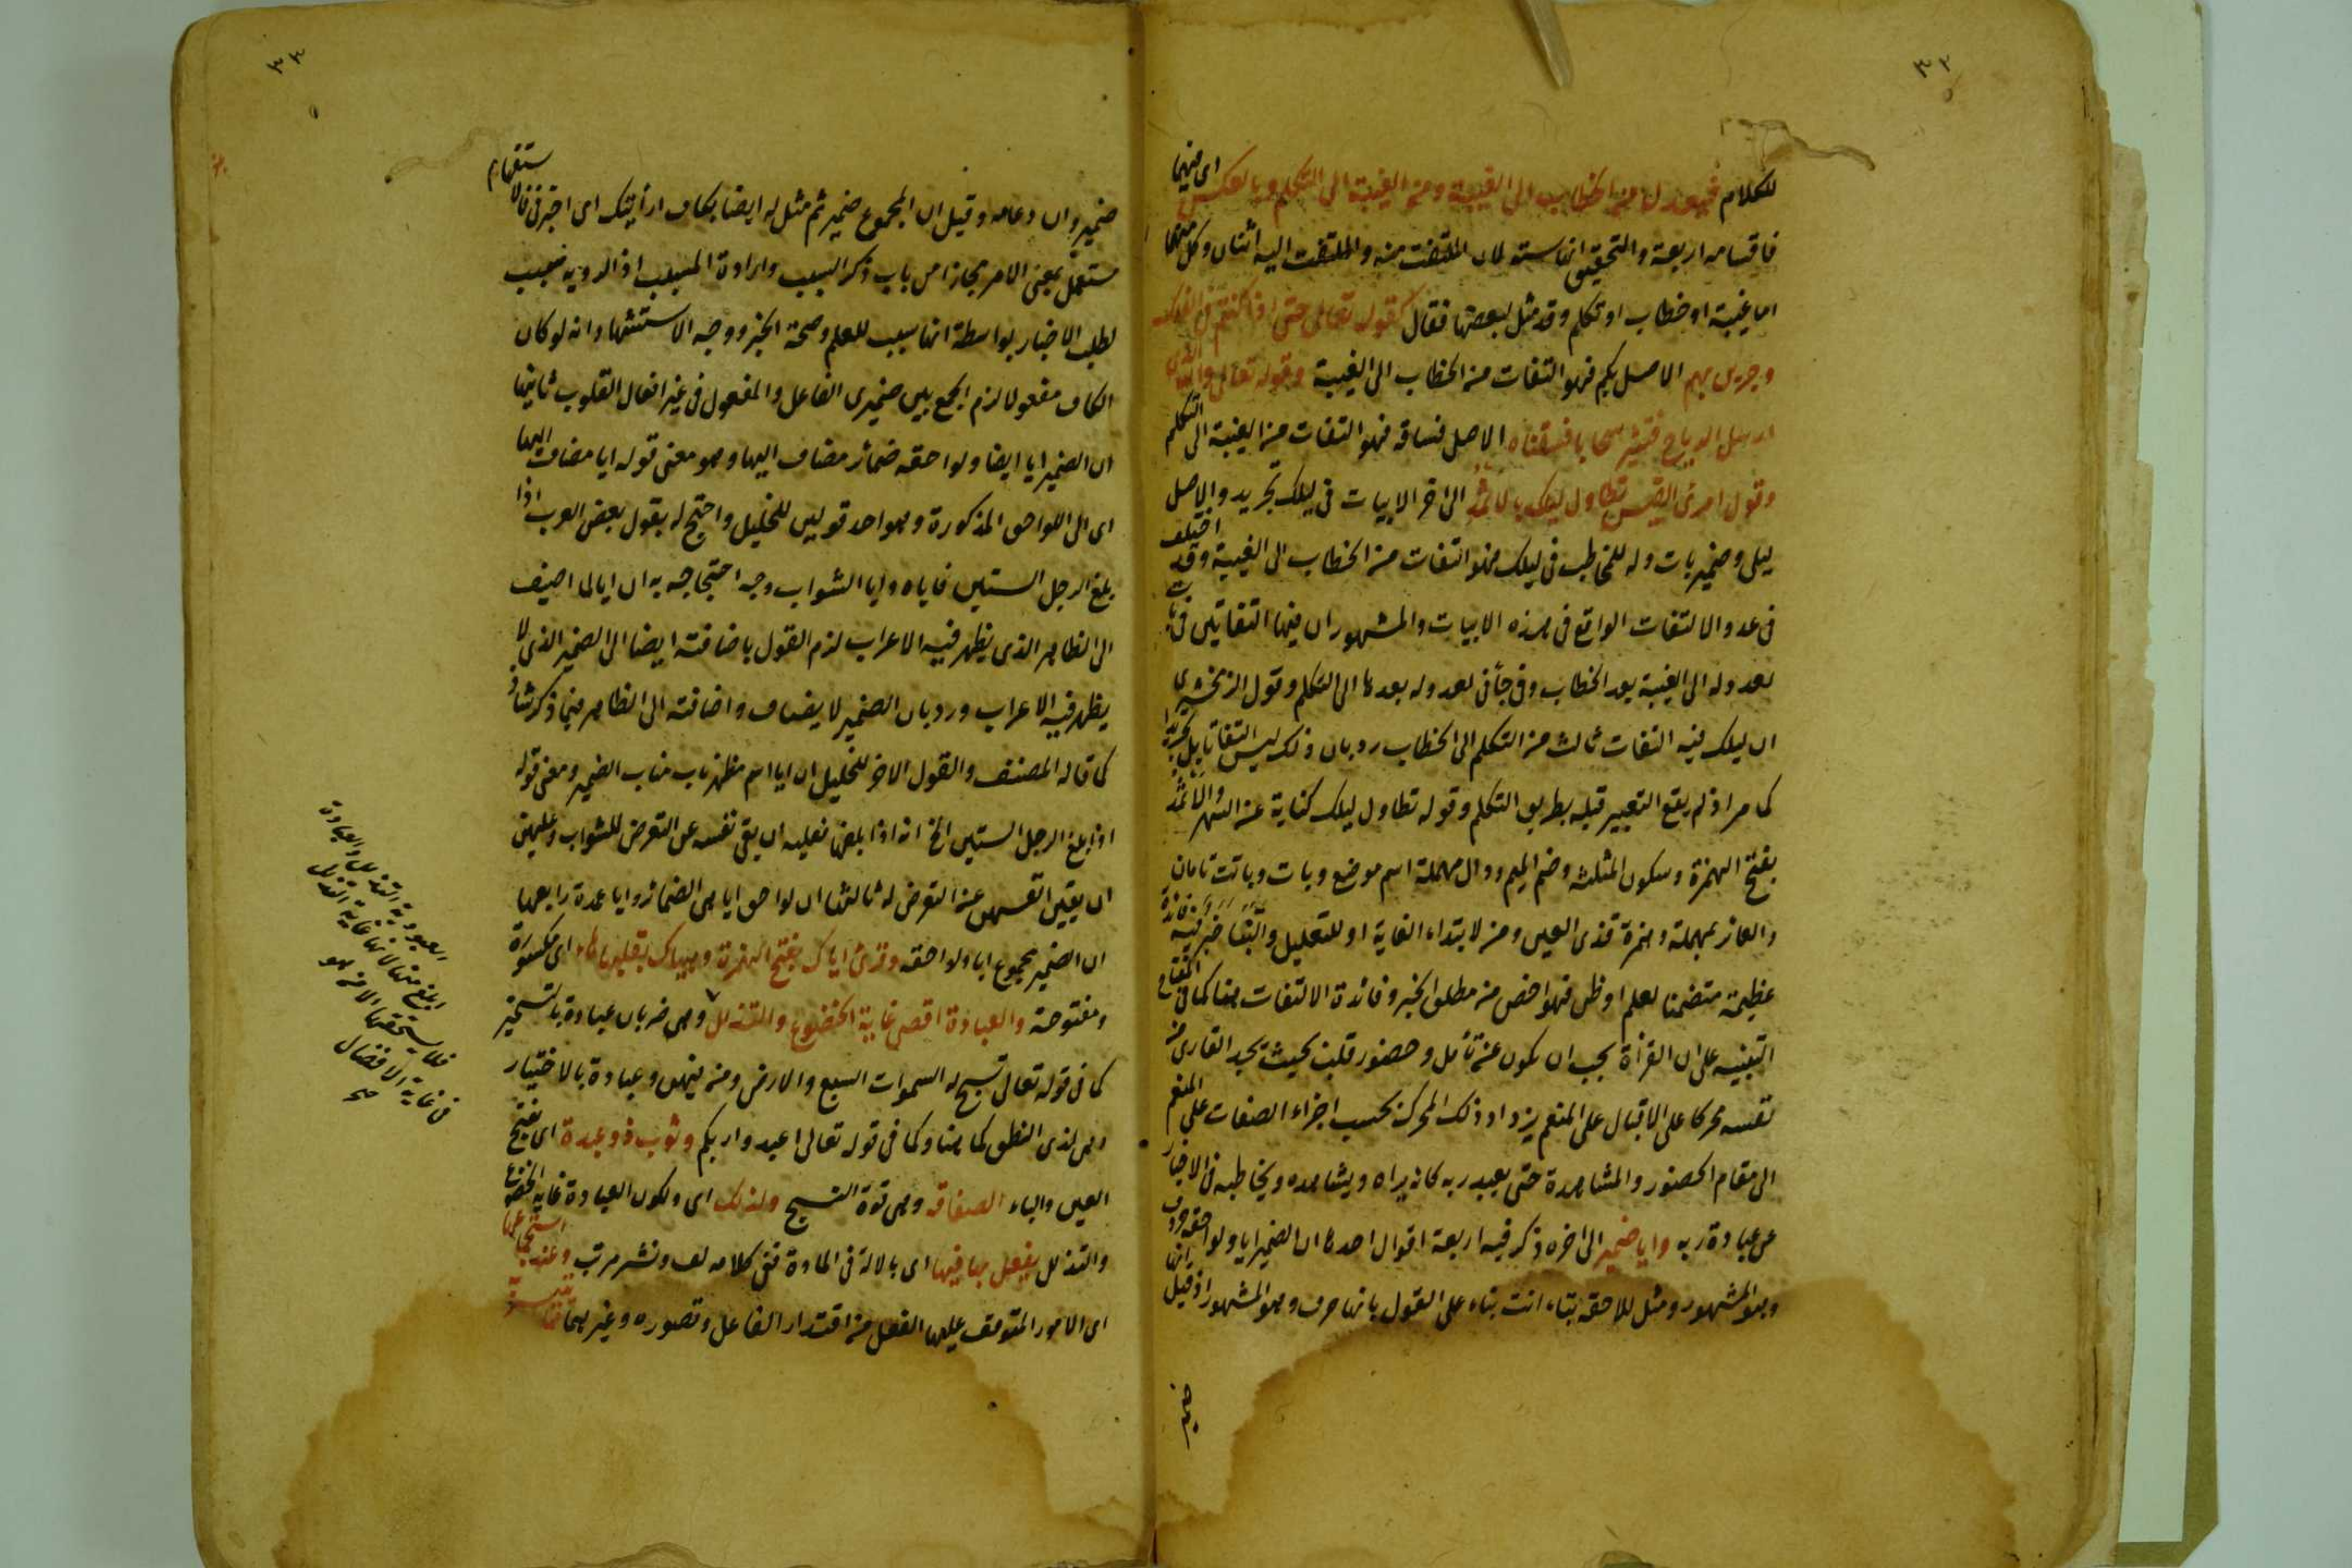 ٣٢
للكلام فيعدل من الخطاب الى الغيبة ومن الغيبة الى التكلم وبالعكس اى فيهما
فاقسامه اربعة والتحقيق انها ستة لان الملتفت منه والملتفت اليه اثنان وكل منهما
اما غيبة او خطاب او تكلم وقد مثل لبعضها فقال كقوله تعالى حتى اذا كنتم فى الفلك
وجرين بهم الاصل بكم فهو التفات من الخطاب الى الغيبة وقوله تعالى والله الذى
ارسل الرياح فتثير سحابا فسقناه الاصل فساقه فهو التفات من الغيبة الى التكلم
وقول امرئ القيس تطاول ليلك بالاثمد الى اخر الابيات فى ليلك تجريد والاصل
ليلى وضمير بات وله للمخاطب فى ليلك فهو التفات من الخطاب الى الغيبة وقد اختلف
فى عدد الالتفات الواقع فى هذه الابيات والمشهور ان فيها التفاتين فى بات
لعدوله الى الغيبة بعد الخطاب وفى جاءنى لعدوله بعدها الى التكلم وقول الزمخشرى
ان ليلك فيه التفات ثالث من التكلم الى الخطاب رد بان ذلك ليس التفاتا بل تجريدا
كما مر اذ لم يقع التعبير قبله بطريق التكلم وقوله تطاول ليلك كناية عن السهر والاثمد
بفتح الهمزة وسكون المثلثة وضم الميم ودال مهملة اسم موضع وبات وباتت تامان
والعائر بمهملة وهمزة قذى العين ومن لابتداء الغاية او للتعليل والنبأ خبر فيه فائدة
عظيمة متضمنا لعلم او ظن فهو اخص من مطلق الخبر وفائدة الالتفات هنا كما فى المفتاح
التنبيه على ان القراة يجب ان تكون عن تأمل وحضور قلب بحيث يجد القارئ من
نفسه محركا على الاقبال على المنعم يزداد ذلك المحرك بحسب اجراء الصفات على المنعم
الى مقام الحضور والمشاهدة حتى يعبد ربه كانه يراه ويشاهده ويخاطبه فى الاخبار
عن عبادة ربه وايا ضمير الى اخره ذكر فيه اربعة اقوال احدها ان الضمير ايا ولواحقه حروف
وهو المشهور ومثل للاحقه بتاء انت بناء على القول بانها حرف وهو المشهور اذ قيل انها
ضمير
٣٣
ضمير وان دعامه وقيل ان المجموع ضمير ثم مثل له ايضا بكاف ارأيتك اى اخبرنى فالاستفهام
مستعمل بمعنى الامر مجازا من باب ذكر السبب وارادة المسبب اذ الروية سبب
لطلب الاخبار بواسطة انها سبب للعلم وصحة الخبر ووجه الاستشهاد انه لو كان
الكاف مفعولا لزم الجمع بين ضميرى الفاعل والمفعول فى غير افعال القلوب ثانيها
ان الضمير ايا ايضا ولواحقه ضمائر مضاف اليها وهو معنى قوله ايا مضاف اليها
اى الى اللواحق المذكورة وهو احد قولين للخليل واحتج له بقول بعض العرب اذا
بلغ الرجل الستين فاياه وايا الشواب وجه احتجاجه به ان ايا لما اضيف
الى الظاهر الذى يظهر فيه الاعراب لزم القول باضافته ايضا الى الضمير الذى لا
يظهر فيه الاعراب ورد بان الضمير لا يضاف واضافته الى الظاهر فيما ذكر شاذ
كما قاله المصنف والقول الاخر للخليل ان ايا اسم مظهر ناب مناب الضمير ومعنى قوله
اذا بلغ الرجل الستين الخ انه اذا بلغها فعليه ان يقى نفسه عن التعرض للشواب وعليهن
ان يقين انفسهن عن التعرض له ثالثها ان لواحق ايا هى الضمائر وايا عمدة رابعها
ان الضمير مجموع ايا ولواحقه وقرئ اياك بفتح الهمزة وهياك بقلبها هاء اى مكسورة
ومفتوحة والعبادة اقصى غاية الخضوع والتذلل وهى ضربان عبادة بالتسخير
كما فى قوله تعالى تسبح له السموات السبع والارض ومن فيهن وعبادة بالاختيار
وهى لذى النطق كما هنا وكما فى قوله تعالى اعبدوا ربكم وثوب ذو عبدة اى بفتح
العين والباء الصفاقة وهى قوة النسج ولذلك اى ولكون العبادة غاية الخضوع
والتذلل يفعل بها فيها اى بالالة فى المادة ففى كلامه لف ونشر مرتب وعند استجماعها
اى الامور المتوقف عليها الفعل من اقتدار الفاعل وتصوره وغيرهما
العبودية التذلل والعبادة
ابلغ منها لانها غاية التذلل
فلا يستحقها الا من هو
فى غاية الافضال
صح